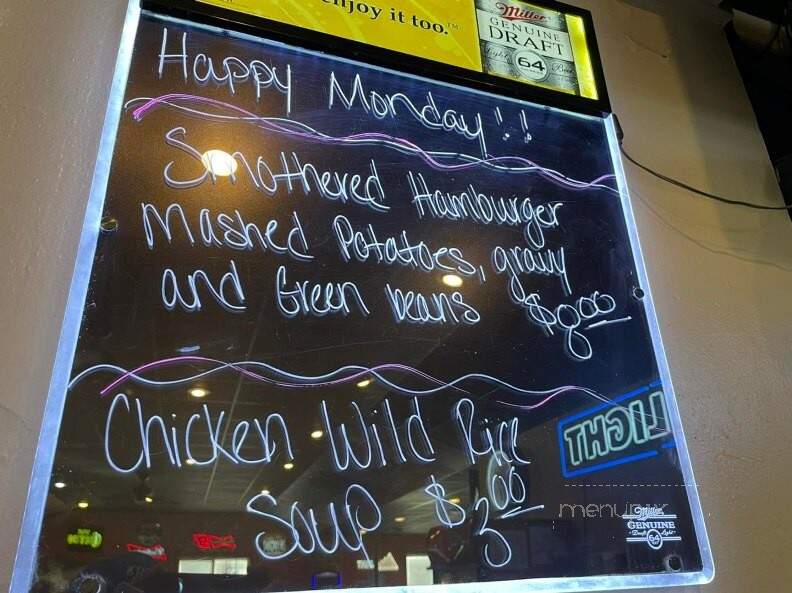 enjoy it too.™
Miller
GENUINE
DRAFT
Light 64 Beer
Happy Monday!!
Smothered Hamburger
Mashed Potatoes, gravy
and Green beans $8.00
Chicken Wild Rice
Soup $3.00
LIGHT
menupix
Miller
GENUINE
Draft Light
64